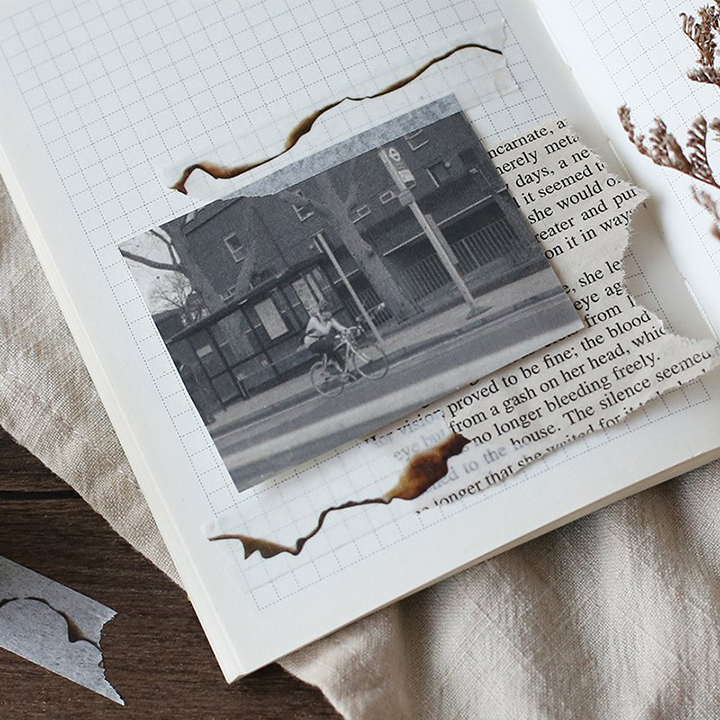 incarnate, a
merely meta
days, a ne
it seemed t
she would o
reater and pu
on it in way
, she le
eye ag
from 
proved to be fine; the blood
from a gash on her head, whic
no longer bleeding freely.
The silence seemed
to the house.
longer that she waited for it
Her vision
eye but